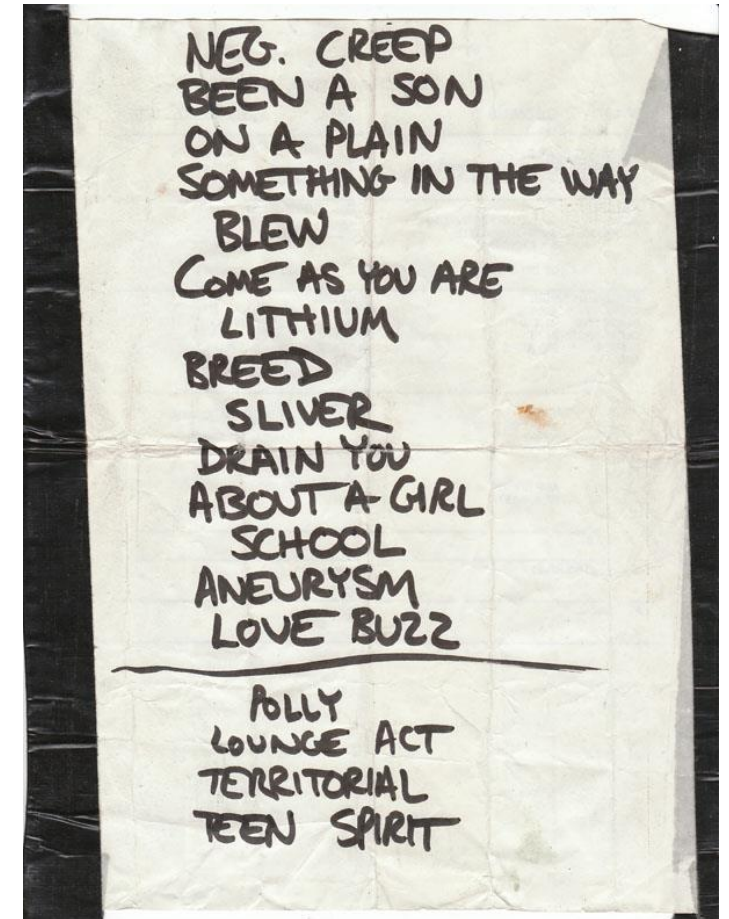 NEG. CREEP
BEEN A SON
ON A PLAIN
SOMETHING IN THE WAY
BLEW
COME AS YOU ARE
LITHIUM
BREED
SLIVER
DRAIN YOU
ABOUT A GIRL
SCHOOL
ANEURYSM
LOVE BUZZ
POLLY
LOUNGE ACT
TERRITORIAL
TEEN SPIRIT